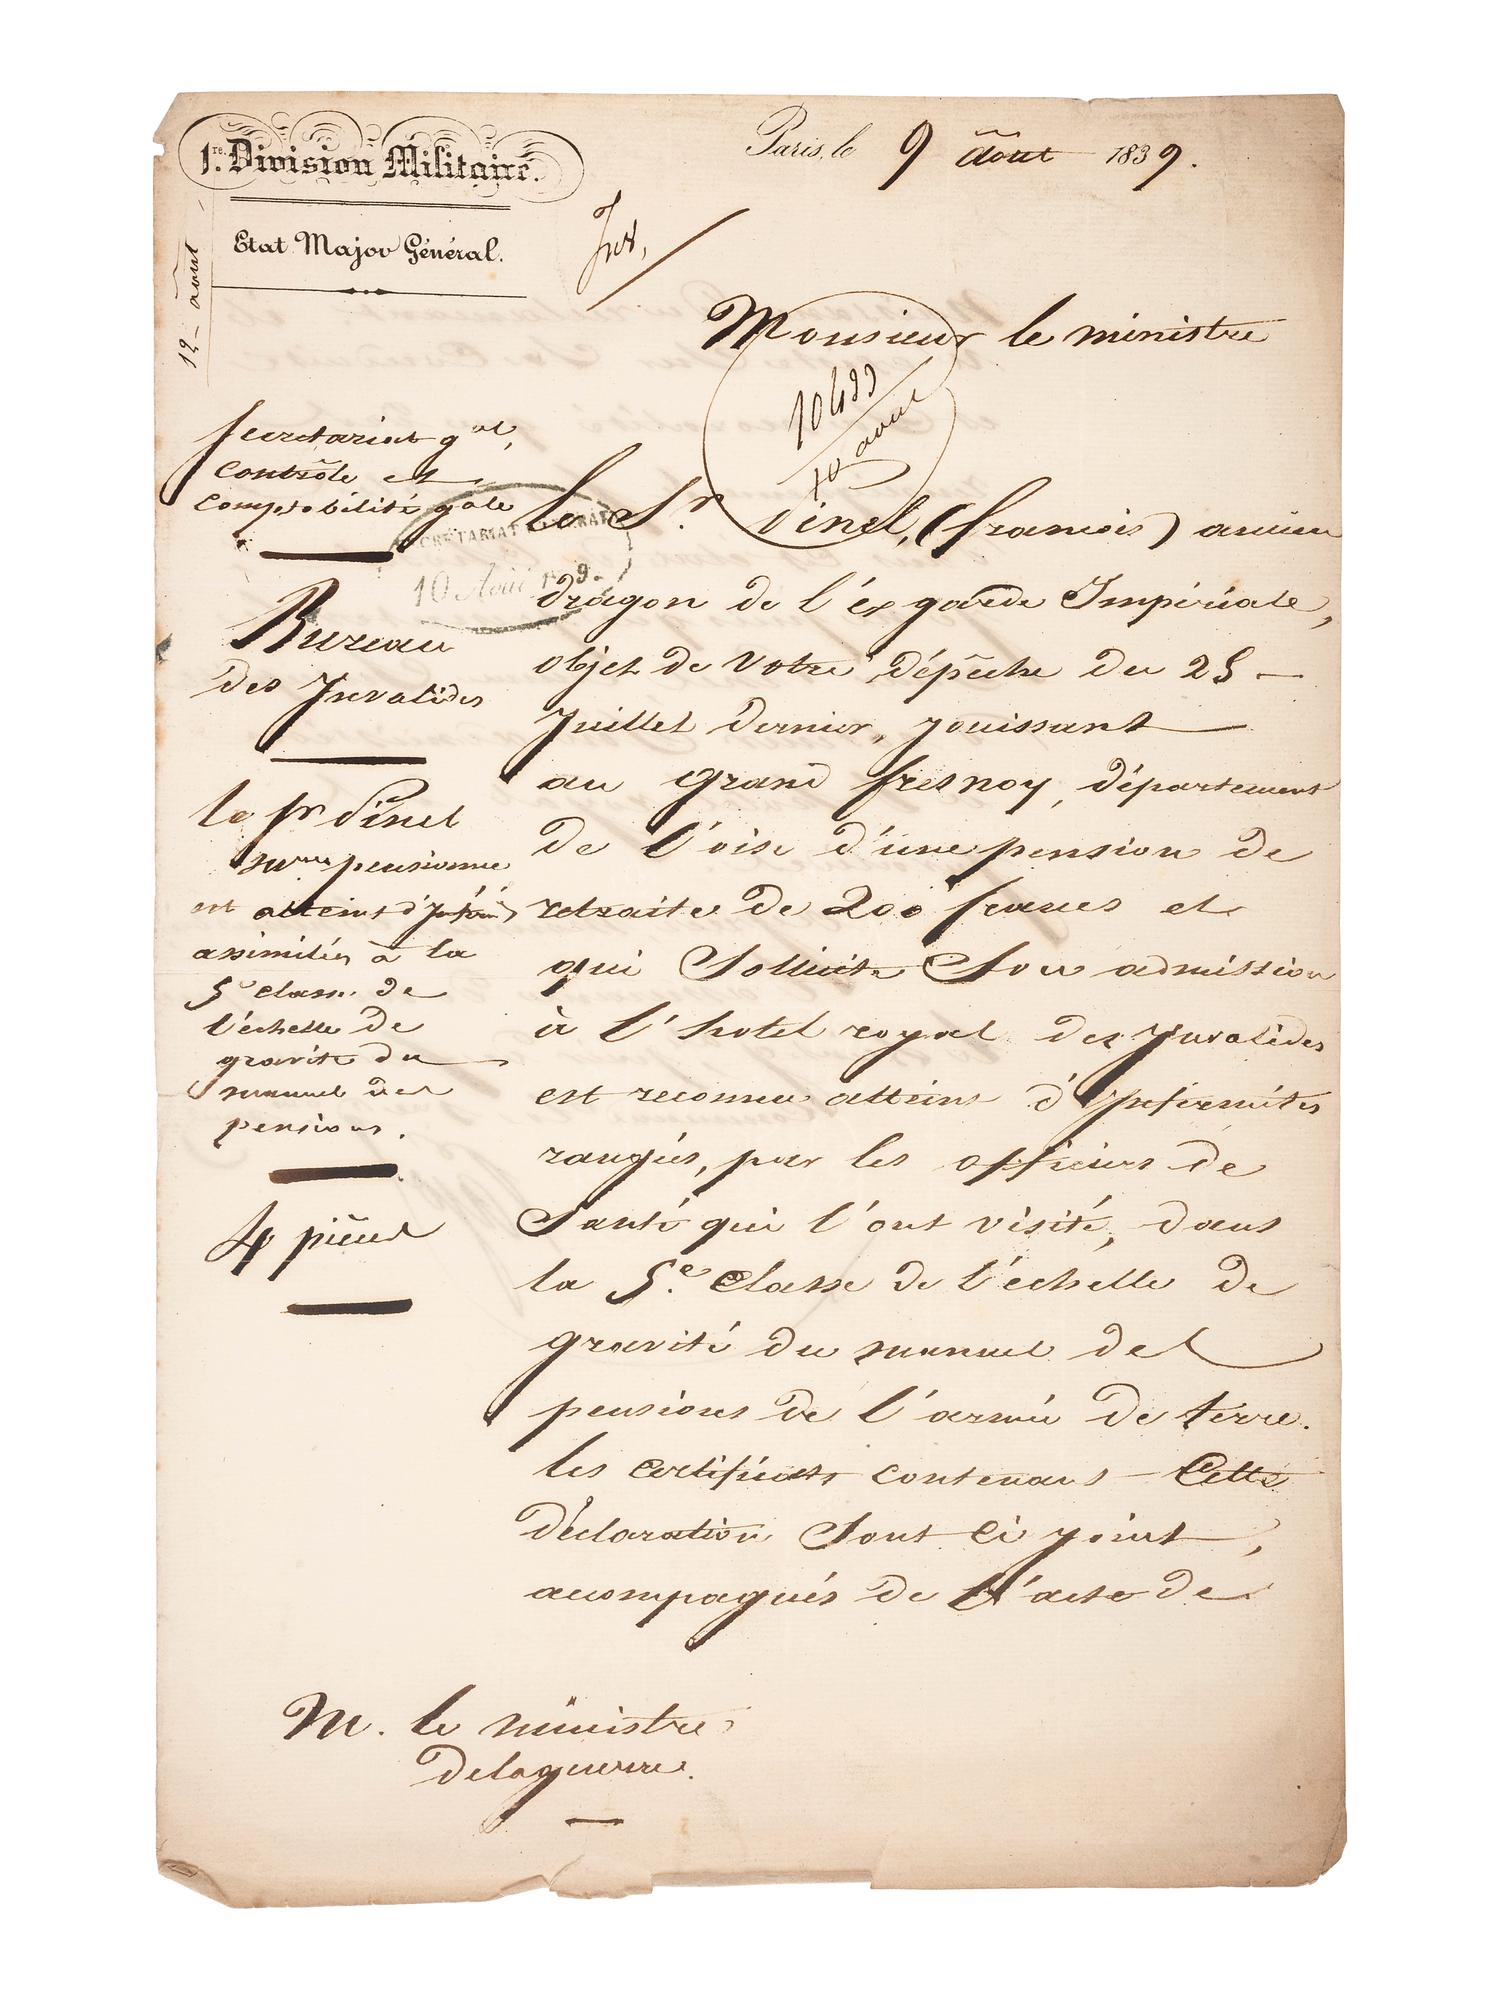 1re. Division Militaire.
Etat Major Général.
Paris, le 9 août 1839.
12 - août -
Monsieur le ministre
10433
10 août
Secretariat gal,
contrôle et
comptabilité gale
SECRÉTARIAT GÉNÉRAL
10 Août 1839.
Bureau
des Invalides
le Sr Dinel
pensionné
est atteint d'
assimilées à la
5e classe de
l'échelle de
gravité du
manuel des
pensions.
4 pièces
le Sr. Dinel, (françois) ancien
dragon de l'ex garde Impériale,
objet de votre dépêche du 25 -
Juillet dernier, jouissant
au grand fresnoy, département
de l'oise d'une pension de
retraite de 200 francs et
qui Sollicite Son admission
à l'hotel royal des Invalides
est reconnu atteint d'Infirmités
rangées, par les officiers de
Santé qui l'ont visité, dans
la 5e. Classe de l'échelle de
gravité du manuel des
pensions de l'armée de terre.
les certificats contenant Cette
déclaration Sont ci joint,
acompagnés de l'acte de
M. le ministre
delaguerre.